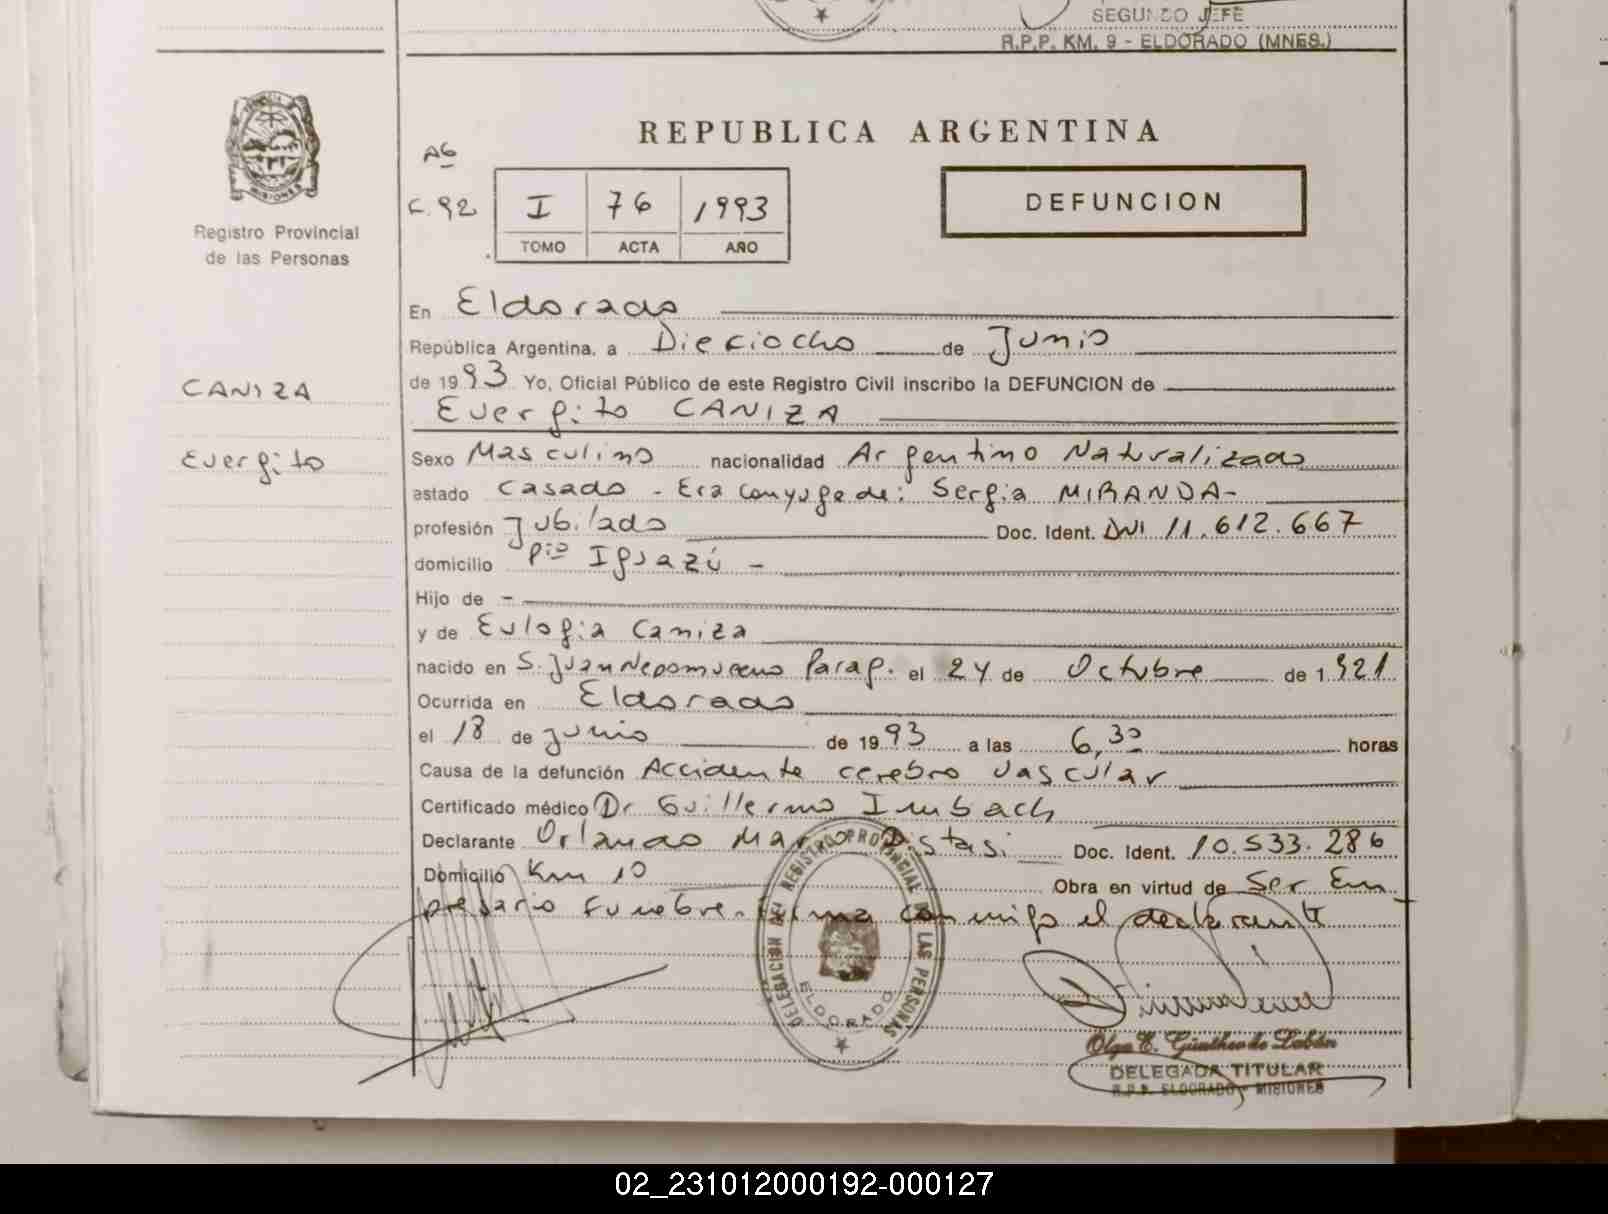 SEGUNDO JEFE
R.P.P. KM. 9 - ELDORADO (MNES.)
PROVINCIA DE
MISIONES
Registro Provincial
de las Personas
REPUBLICA ARGENTINA
A6
C. 92
I 76 1993
TOMO ACTA AÑO
DEFUNCION
CANIZA
Evergito
En Eldorado
República Argentina, a Dieciocho de Junio
de 1993 Yo, Oficial Público de este Registro Civil inscribo la DEFUNCION de
Evergito CANIZA
Sexo Masculino nacionalidad Argentino Naturalizado
estado Casado - Era Conyuge de: Sergia MIRANDA-
profesión Jubilado Doc. Ident. DNI 11.612.667
domicilio Pto Iguazú -
Hijo de -
y de Eulogia Caniza
nacido en S. Juan Nepomuceno Parag. el 24 de Octubre de 1.921
Ocurrida en Eldorado
el 18 de junio de 1993 a las 6,30 horas
Causa de la defunción Accidente cerebro vascular
Certificado médico Dr Guillermo Imbach
Declarante Orlando Mario Distasi Doc. Ident. 10.533.286
Domicilio Km 10 Obra en virtud de Ser Em
presario Funebre. Firma conmigo el declarante
DELEGACION DEL REGISTRO PROVINCIAL DE LAS PERSONAS
ELDORADO
Olga E. Günther de Labán
DELEGADA TITULAR
R.P.P. ELDORADO - MISIONES
02_231012000192-000127